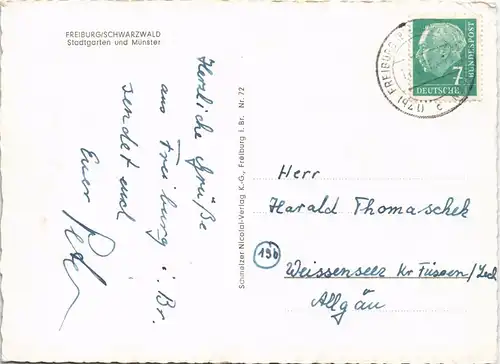 FREIBURG/SCHWARZWALD
Stadtgarten und Münster
Herzliche Grüße
aus Freiburg i. Br.
sendet euch
Euer Peter
Schmelzer Nicolai-Verlag K.-G., Freiburg i. Br. Nr. 72
(17b) FREIBURG
7
DEUTSCHE
BUNDESPOST
Herr
Harald Thomaschek
13b
Weissensee Kr Füssen/Lech
Allgäu